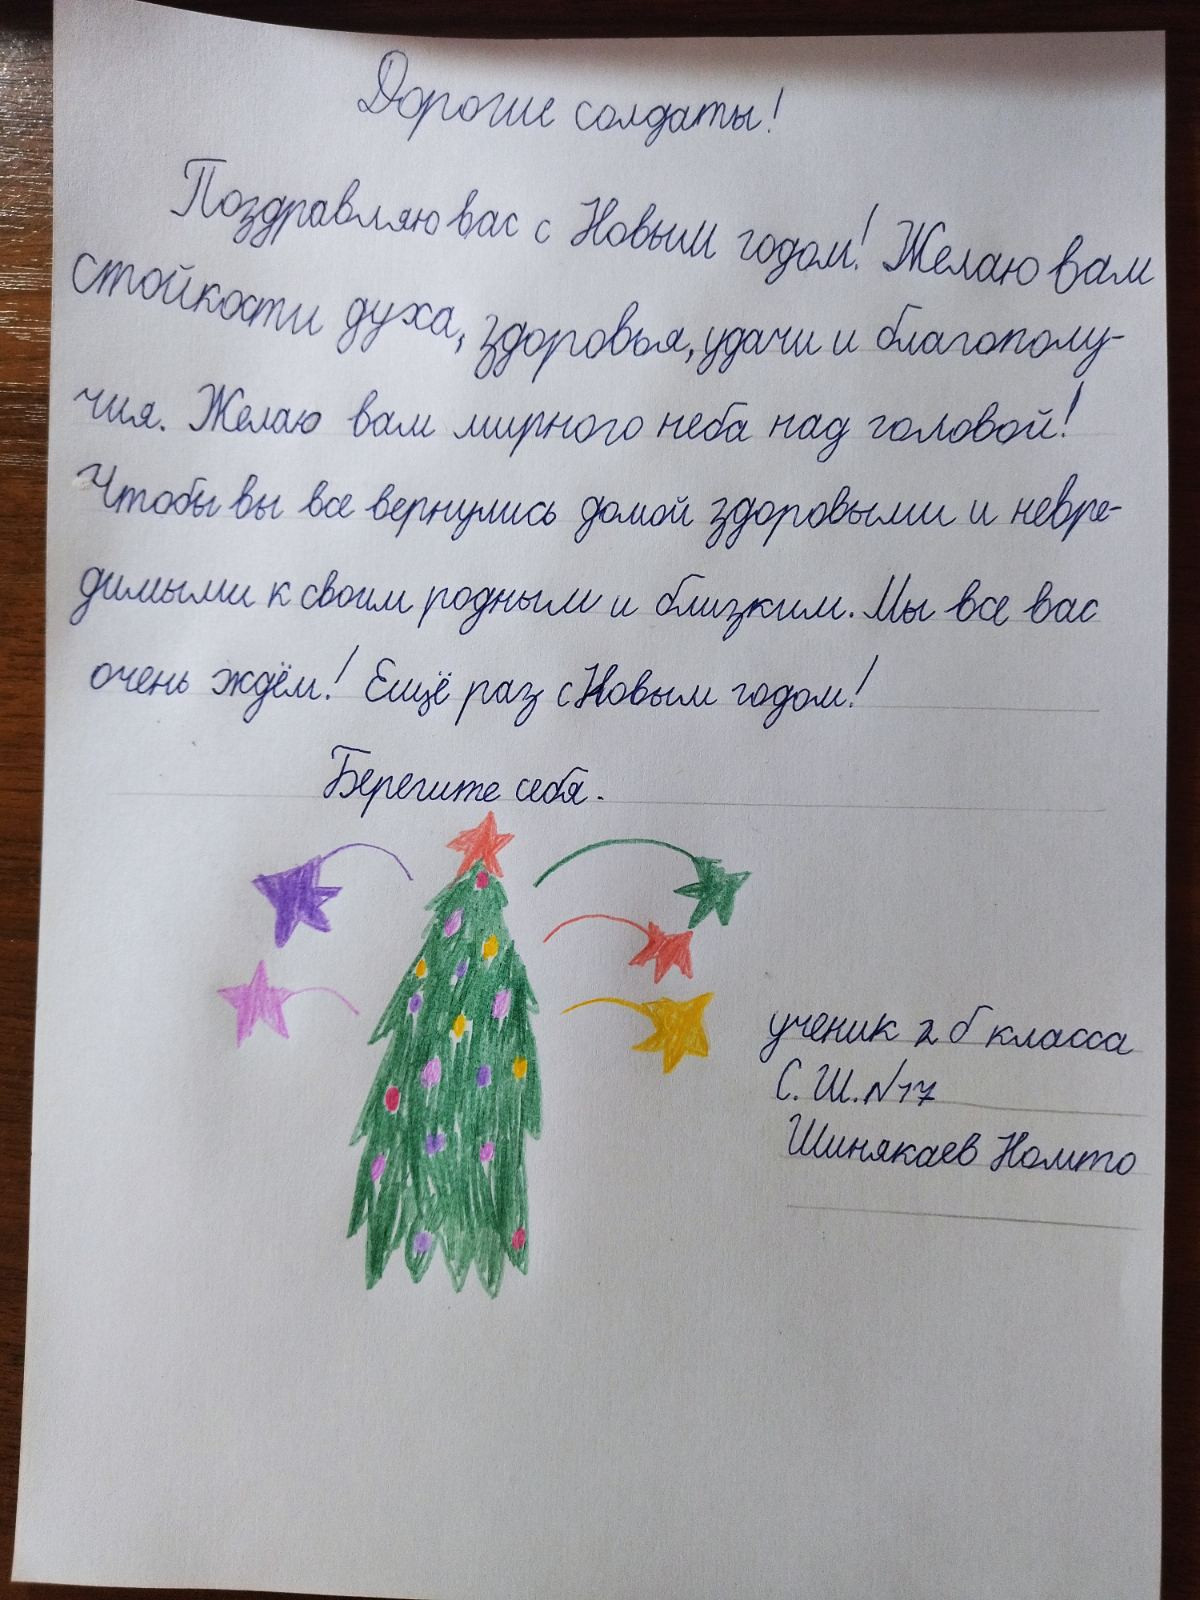 Дорогие солдаты!
Поздравляю вас с Новым годом! Желаю вам
стойкости духа, здоровья, удачи и благополу-
чия. Желаю вам мирного неба над головой!
Чтобы вы все вернулись домой здоровыми и невре-
димыми к своим родным и близким. Мы все вас
очень ждём! Ещё раз с Новым годом!
Берегите себя.
ученик 2 б класса
С. Ш. N17
Шинякаев Номто